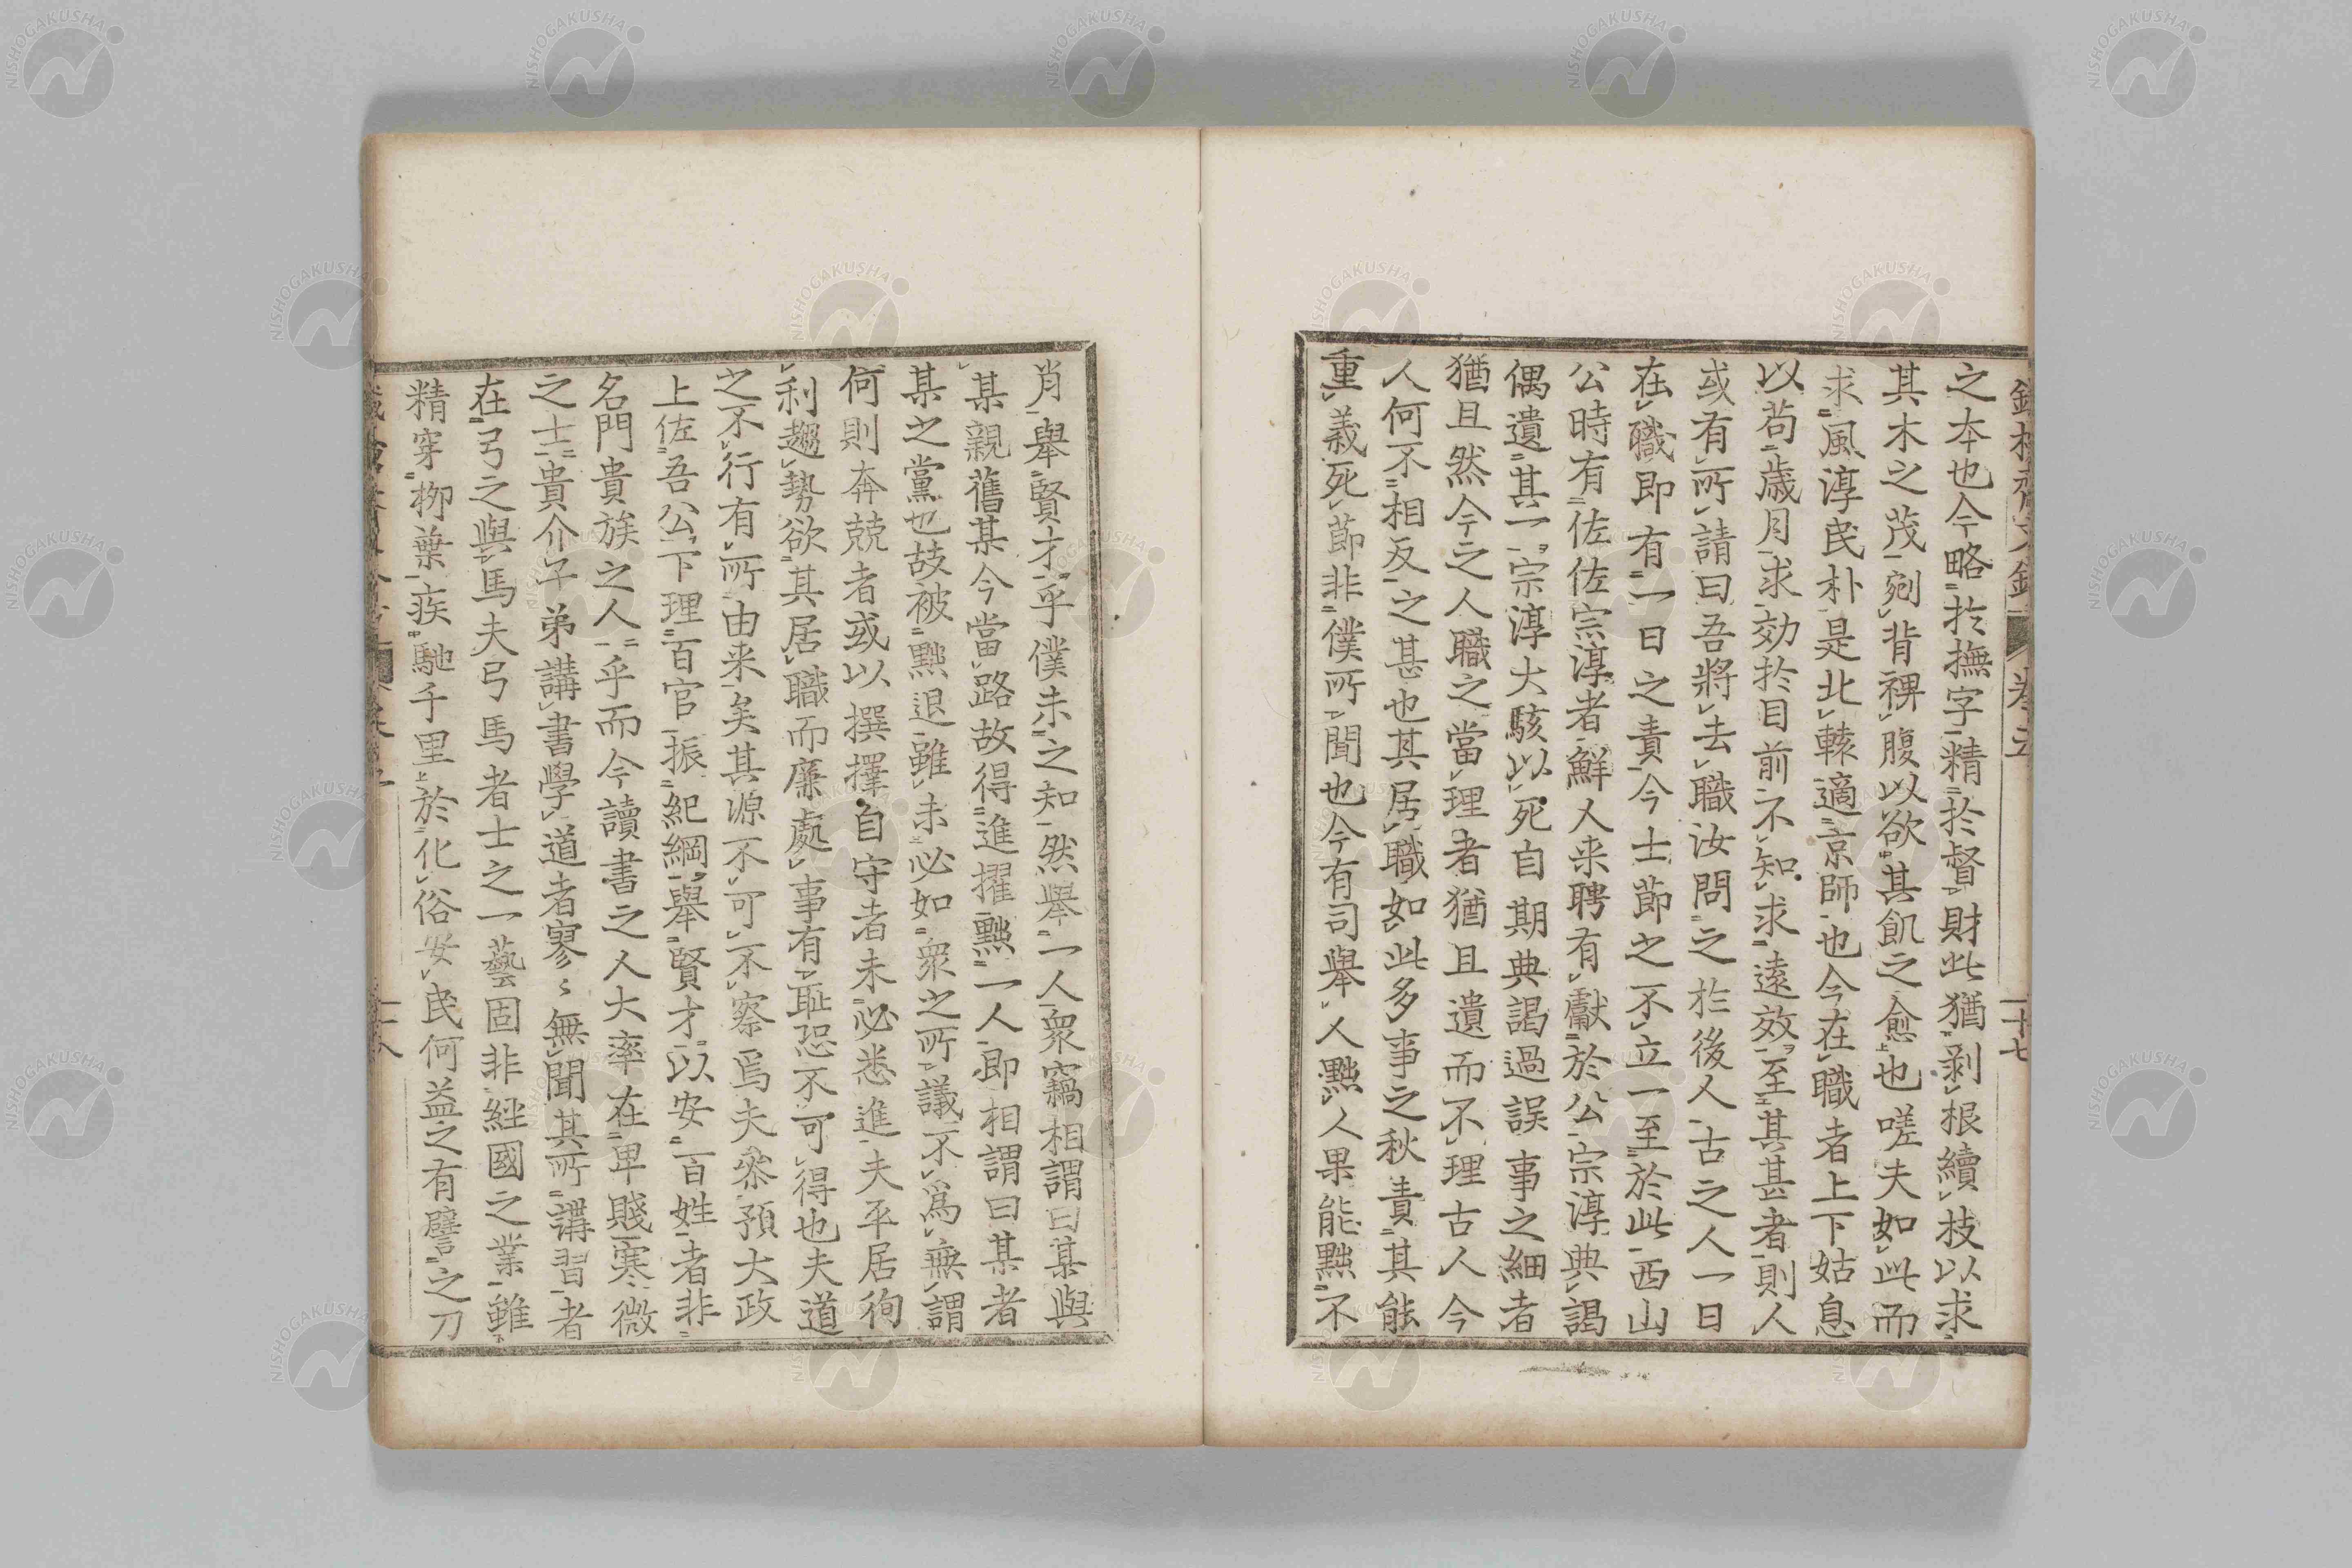 之本也今略於撫字精於督財此猶剥根續枝以求
其木之茂剜背裨腹以欲其飢之愈也嗟夫如此而
求風淳民朴是北轅適京師也今在職者上下姑息
以苟歳月求効於目前不知求遠效至其甚者則人
或有所請曰吾將去職汝問之於後人古之人一日
在職即有一日之責今士節之不立一至於此西山
公時有佐佐宗淳者鮮人来聘有獻於公宗淳典謁
偶遺其一宗淳大駭以死自期典謁過誤事之細者
猶且然今之人職之當理者猶且遺而不理古人今
人何不相反之甚也其居職如此多事之秋責其能
重義死節非僕所聞也今有司舉人黜人果能黜不
十七
肖舉賢才乎僕未之知然舉一人衆竊相謂曰某與
某親舊某今當路故得進擢黜一人即相謂曰某者
某之黨也故被黜退雖未必如衆之所議不爲無謂
何則奔兢者或以撰擇自守者未必悉進夫平居徇
利趨勢欲其居職而廉處事有恥恐不可得也夫道
之不行有所由来矣其源不可不察焉夫叅預大政
上佐吾公下理百官振紀綱舉賢才以安百姓者非
名門貴族之人乎而今讀書之人大率在卑賤寒微
之士貴介子弟講書學道者寥〻無聞其所講習者
在弓之與馬夫弓馬者士之一藝固非經國之業雖
精穿柳葉疾馳千里於化俗安民何益之有譬之刀
NISHOGAKUSHA